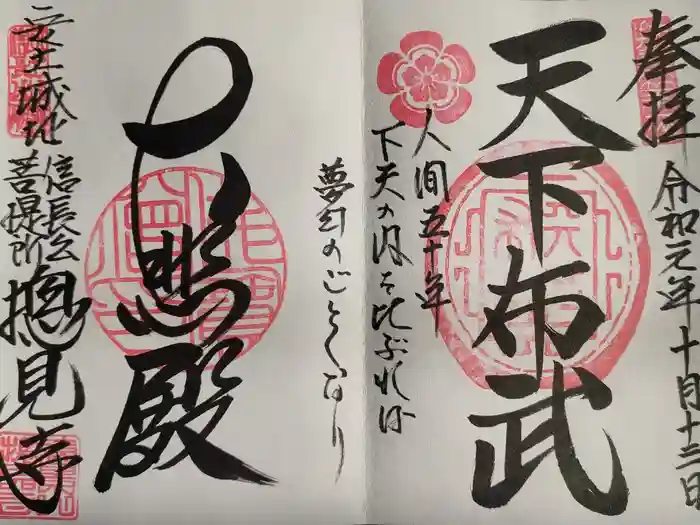 奉拝
令和元年十月十三日
天下布武
人間五十年
下天の内をくらぶれば
夢幻のごとくなり
悲殿
安土城址
信長公
菩提所
摠見寺